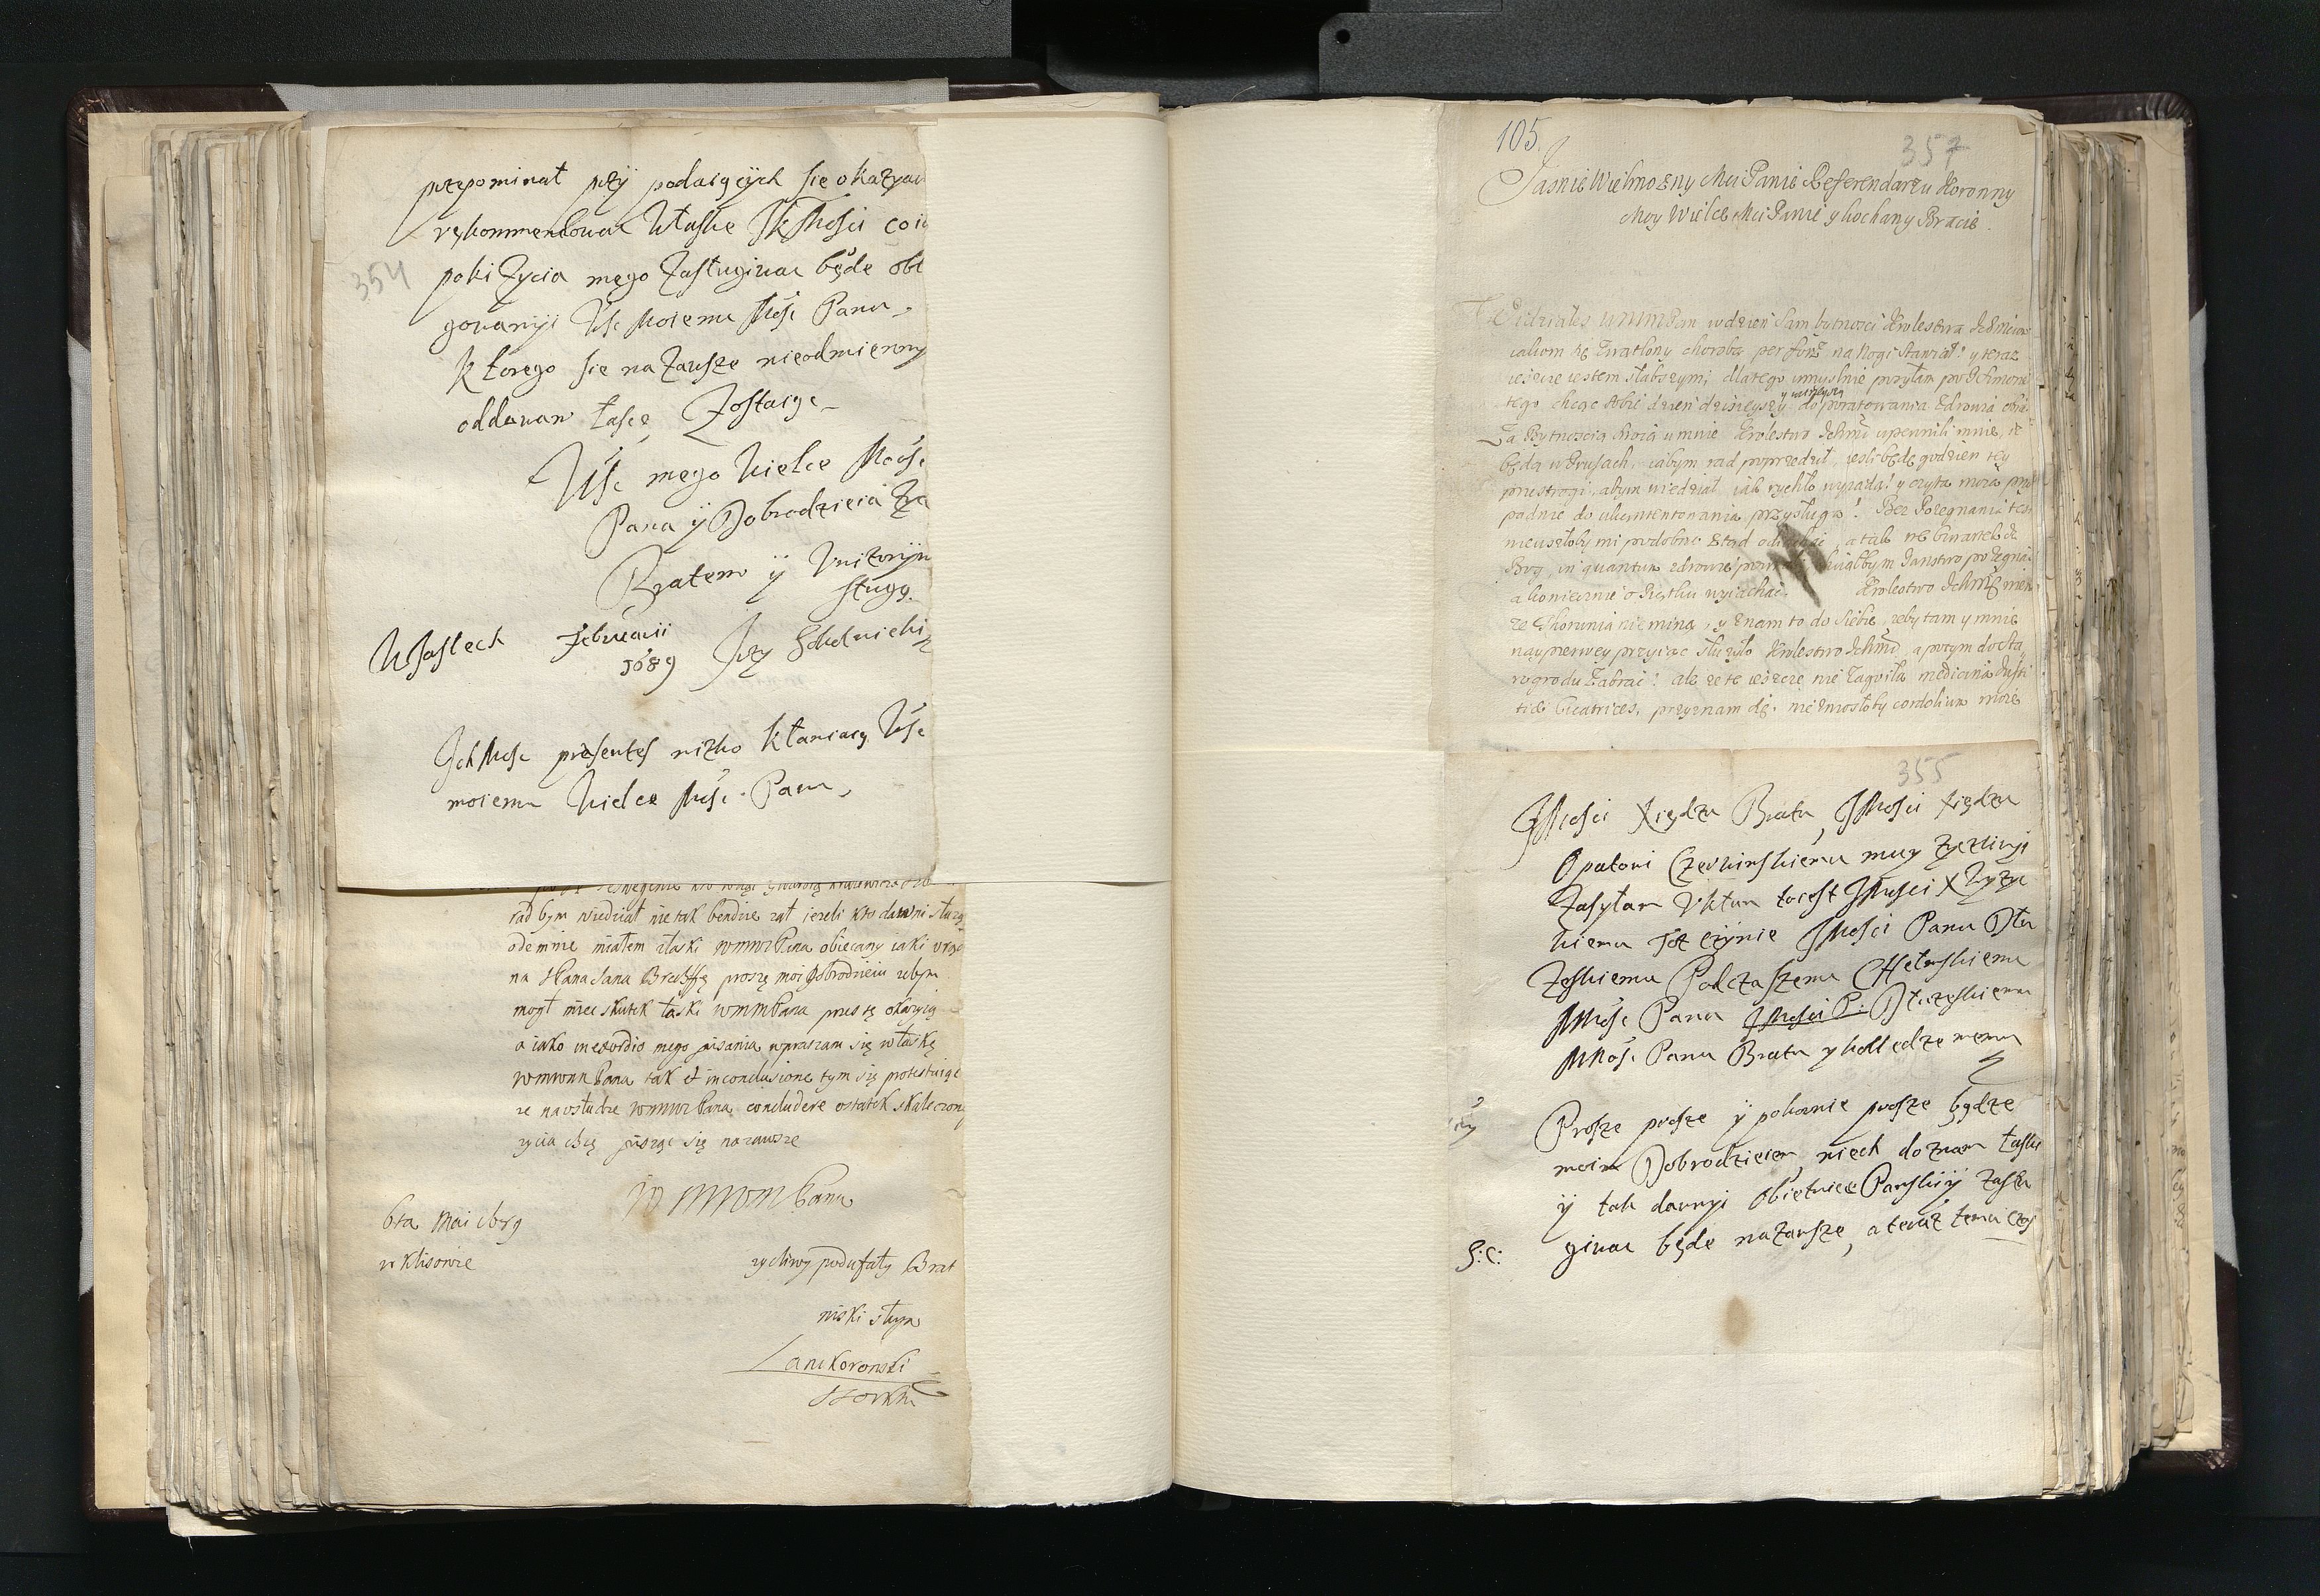 przepominał przy podaiących się okazyac
rekommendowac Właske JKMosci co ia
354
poki Zycia mego Zasługiwac będe obl
gowanyi WSc Moiemu Mośc Panu
Ktorego się na Zawsze nieodmienny
oddawam łasce, Zostaige
WSc mego wielce Mośc
Pana ÿ Dobrodzieia Zy
Bratem ÿ Unizonym
sługą.
WJasłech Februarii
1689 Jrzy
JchMosc presentes nizko kłaniaią WSc
moiemu Wielce Mośc Panu
rad bym wiedział nie tak bendzie zał iezeli kto dawni sług
odemnie miałem złaski wmmPana obiecany iaki
na Pana Jana proszę moi dobrodzieiu zebym
mogł miec skutek łaski wmmPana przes tę okazyią
a iako inexordio mego pisania wpraszam się właskę
WmmPana tak et inconclusione tym się protestuiąc
ze nausłudze wmmPana concludere ostatek skaleczony
zycia chcę pisząc się nazawsze
WMMPana
6ta Mai 1689
w Klisowie
zyczliwy podufały Brat
niski sługa
Lanckoronski
105.
357
Jasnie Wielmozny Mci Panie Referendarzu Koronny
Moy Wielce Mci Panie y kochany Bracie.
Widziałes WMMPan wdzien sam bytnosci Krolestwa Ichmciow
iakom się zwątlony chorobą per forz na nogi stawiał: y teraz
ieszcze iestem słabszym; dlatego umyslnie przyłam po
tego chcąc sobie dzien dzisieyszy y iutrzeyszy do poratowania zdrowia
Za Bytnoscią swoią u mnie Krolestwo Ichmć upewnili mnie, ze
będą w Prusach, iabym rad poprzedził, iesli będę godzien tey
przestrogi, abym wiedział iak rychło wyiadą? y czyta moia przy
podnie do ukontentowania przysługa? Bez Pozegnania tes
nieuszłoby mi podobno ztąd odiechać, a tak we czwartek da
Bog, in quantum zdrowie chciałbym Panstwo pozegnac
a koniecznie o Piątku wyiachac. Krolestwo Ichmć
ze Thorunia nie miną, y znam to do siebie, zeby tam y mnie
naypierwey przyiąc słuzyło Krolestwo Ichmć, a potym do Sta
rogrodu zabrać: ale ze te ieszcze nie zagoiła medicina Iusti
tiae cicatrices, przyznam się, nie zniosłoby cordolium moie
355
JMosci Xiędzu Bratu, JMosci Xiędzu
Opatowi Czerwinskiemu muy zyczliwyi
Zasyłam Uktun toiest JMosci X
kiemu Tez czynie JMosci Panu Dłu
Zeskiemu Podczaszemu CHełmskiemu
MMośc Panu JMosci P: Dłuzeskiemu
MMośc Panu Bratu y kolledze memu
Prosze prosze ÿ pokornie prosze bądze
moim Dobrodzieiem, niech doznam łaske
ÿ tak dawnyi obietnice Panskiÿ Zasłu
S:C: giwac będe na Zawsze, a teraz temu czas